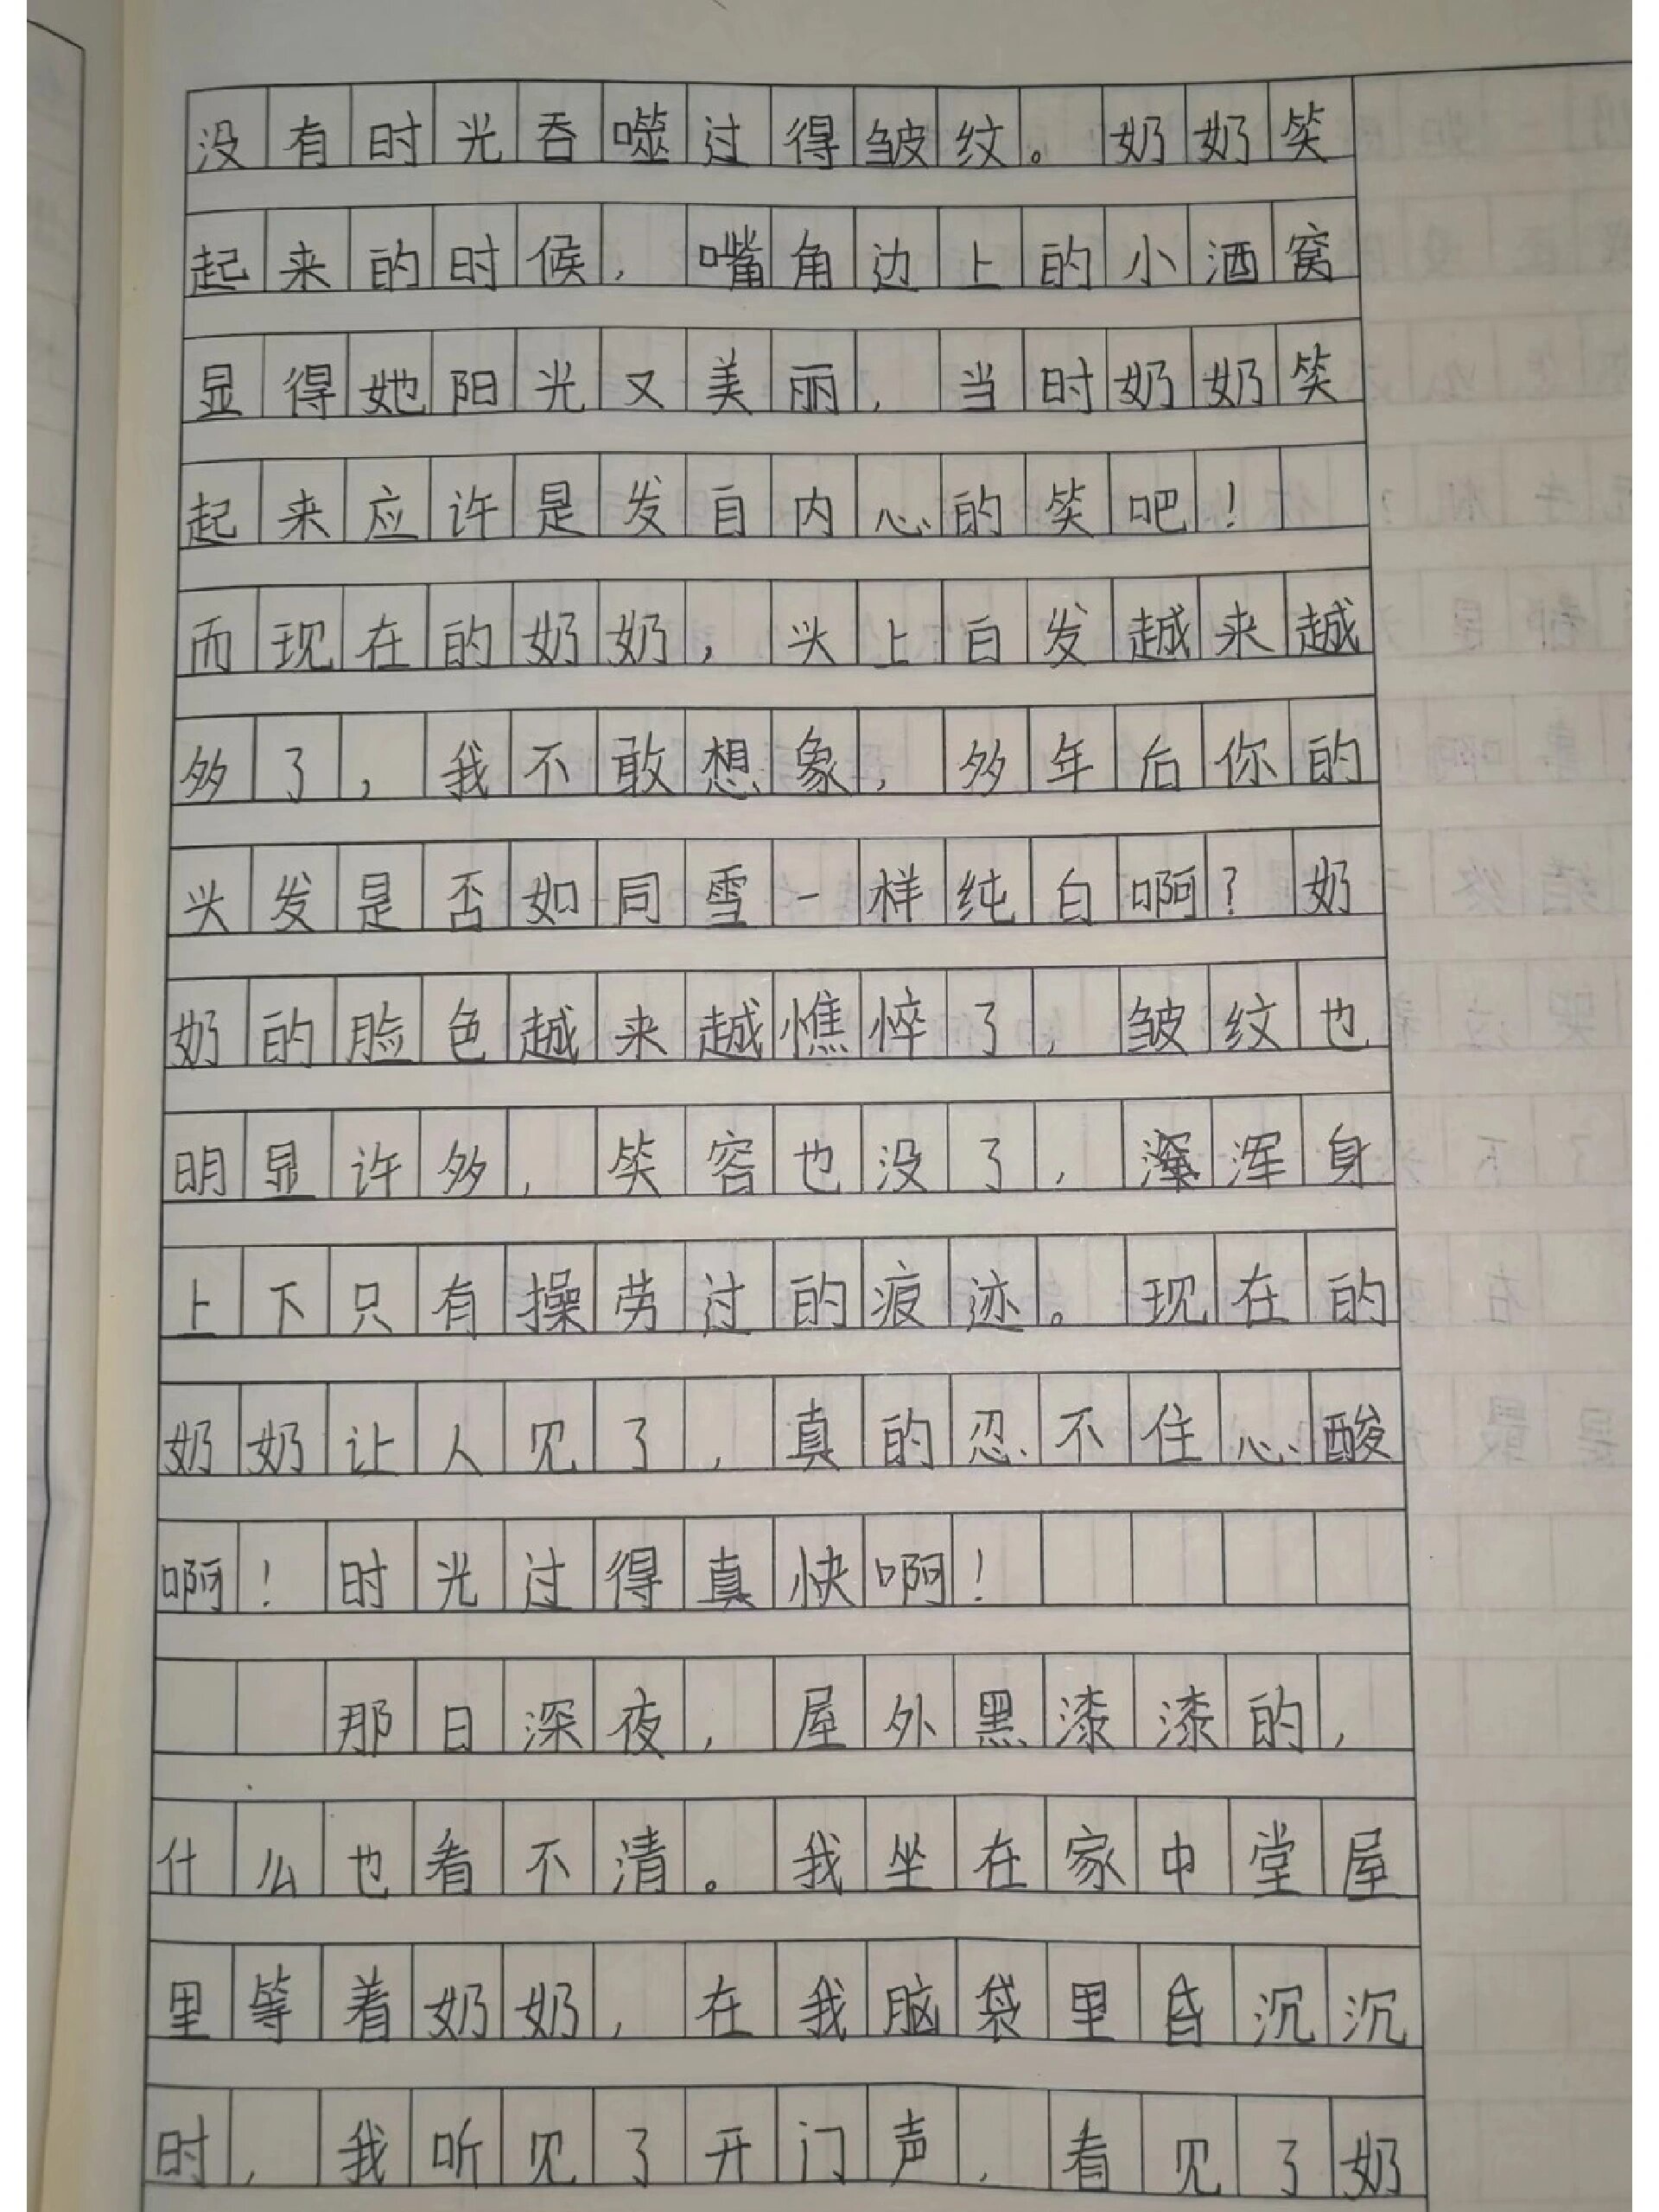 没有时光吞噬过得皱纹。奶奶笑
起来的时候，嘴角边上的小酒窝
显得她阳光又美丽，当时奶奶笑
起来应许是发自内心的笑吧！
而现在的奶奶，头上白发越来越
多了，我不敢想象，多年后你的
头发是否如同雪一样纯白啊？奶
奶的脸色越来越憔悴了，皱纹也
明显许多，笑容也没了，浑身
上下只有操劳过的疲迹。现在的
奶奶让人见了，真的忍不住心酸
啊！时光过得真快啊！
那日深夜，屋外黑漆漆的，
什么也看不清。我坐在家中堂屋
里等着奶奶，在我脑袋里昏沉沉
时，我听见了开门声，看见了奶